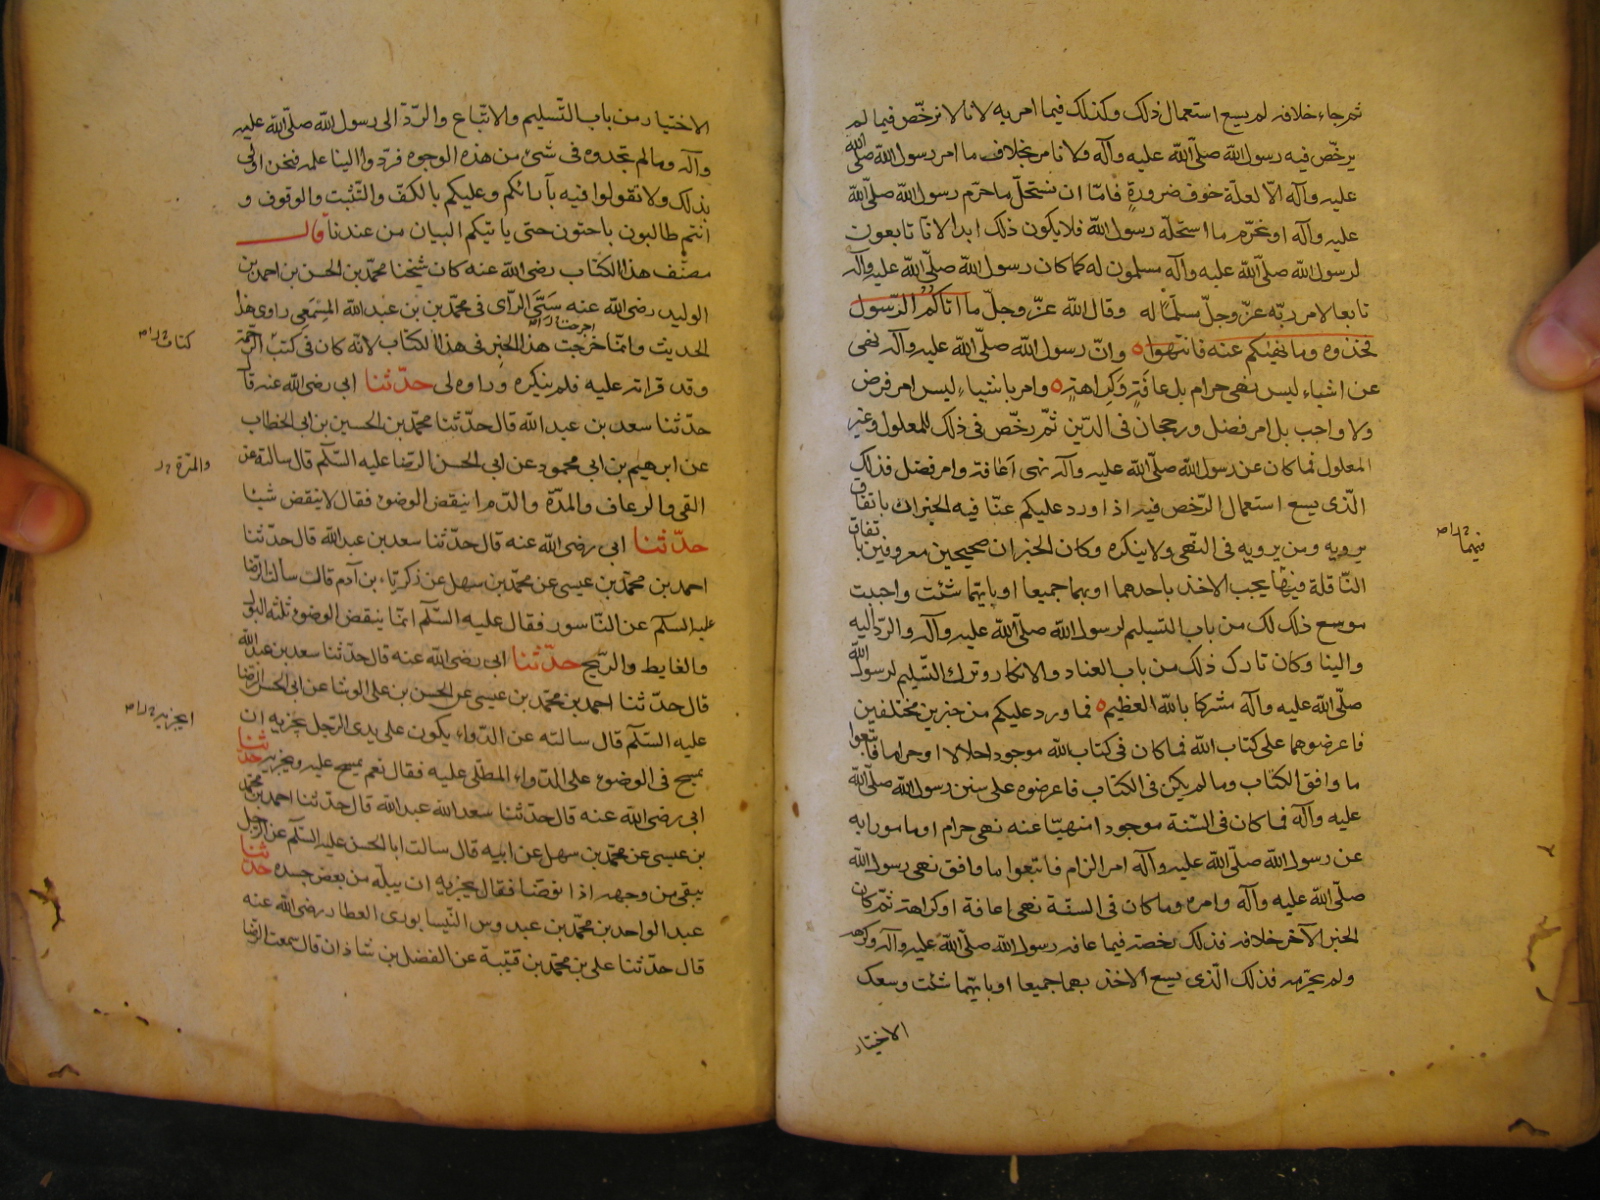 ثم جاء خلافه لم يسع استعمال ذلك وكذلك فيما امر به لانا لا نرخّص فيما لم
يرخّص فيه رسول الله صلّى الله عليه وآله ولا نامر بخلاف ما امر رسول الله صلّى الله
عليه وآله الّا لعلّة خوف ضرورةٍ فامّا ان نستحلّ ما حرّم رسول الله صلّى الله
عليه وآله او نحرّم ما استحلّه رسول الله فلا يكون ذلك ابدا لانا تابعون
لرسول الله صلّى الله عليه وآله مسلمون له كما كان رسول الله صلّى الله عليه وآله
تابعا لامر ربّه عزّ وجلّ مسلّما له وقال الله عزّ وجلّ ما اتاكم الرّسول
فخذوه وما نهيكم عنه فانتهوا ٥ وانّ رسول الله صلّى الله عليه وآله نهى
عن اشياء ليس نهى حرام بل عافَةٍ وكراهة ٥ وامر باشياء ليس امر فرض
ولا واجب بل امر فضل ورجحان فى الدّين ثمّ رخّص فى ذلك للمعلول وغير
المعلول فما كان عن رسول الله صلّى الله عليه وآله نهى اعافة وامر فضل فذلك
الّذى يسع استعمال الرّخص فيه اذا ورد عليكم عنّا فيه الخبران باتفاق
يرويه ومن يرويه فى النّهى ولا ينكره وكان الخبران صحيحين معروفين باتفاق
النّاقلة فيهما يجب الاخذ باحدهما او بهما جميعا او بايّهما شئت واحببت
موسع ذلك لك من باب التسليم لرسول الله صلّى الله عليه وآله والردّ اليه
والينا وكان تارك ذلك من باب العناد والانكار وترك التّسليم لرسول الله
صلّى الله عليه وآله مشركا بالله العظيم ٥ فما ورد عليكم من خبرين مختلفين
فاعرضوهما على كتاب الله فما كان فى كتاب الله موجودا حلالا او حراما فاتّبعوا
ما وافق الكتاب وما لم يكن فى الكتاب فاعرضوه على سنن رسول الله صلّى الله
عليه وآله فما كان فى السّنة موجودا منهيّا عنه نهى حرام او مامورا به
عن رسول الله صلّى الله عليه وآله امر الزام فاتبعوا ما وافق نهى رسول الله
صلّى الله عليه وآله وامره وما كان فى السنّة نهى اعافة او كراهة ثمّ كان
الخبر الآخر خلافه فذلك رخصة فيما عافه رسول الله صلّى الله عليه وآله وكرهه
ولم يحرّمه فذلك الّذى يسع الاخذ بهما جميعا او بايّهما شئت وسعك
الاختيار
فيما
الاختيار من باب التّسليم والاتباع والرّدّ الى رسول الله صلّى الله عليه
وآله وما لم تجدوه فى شئ من هذه الوجوه فردّوا الينا علمه فنحن اولى
بذلك ولا تقولوا فيه بآرائكم وعليكم بالكفّ والتّثبت والوقوف و
انتم طالبون باحثون حتى ياتيكم البيان من عندنا قال
مصنّف هذا الكتاب رضى الله عنه كان شيخنا محمّد بن الحسن بن احمد بن
الوليد رضى الله عنه سيّئ الرّاى فى محمّد بن عبد الله المِسْمَعى راوى هذا
الحديث وانّما اخرجت هذا الخبر فى هذا الكتاب لانّه كان فى كتب الرّحمة
وقد قراته عليه فلم ينكره ورواه لى حدّثنا ابى رضى الله عنه قال
حدّثنا سعد بن عبد الله قال حدّثنا محمّد بن الحسين بن ابى الخطاب
عن ابرهيم بن ابى محمود عن ابى الحسن الرّضا عليه السّلم قال سالته عن
القى والرعاف والمدّة والدّم اينقض الوضوء فقال لا ينقض شيئا
حدّثنا ابى رضى الله عنه قال حدّثنا سعد بن عبد الله قال حدّثنا
احمد بن محمّد بن عيسى عن محمّد بن سهل عن زكريّاء بن آدم قالت سالت الرّضا
عليه السلم عن النّاسور فقال عليه السّلم انّما ينقض الوضوء ثلثة البول
والغايط والرّيح حدّثنا ابى رضى الله عنه قال حدّثنا سعد بن عبد الله
قال حدّثنا احمد بن محمّد بن عيسى عن الحسن بن على الوشا عن ابى الحسن الرّضا
عليه السّلم قال سالته عن الدّواء يكون على يدى الرّجل يجزيه ان
يمسح فى الوضوء على الدّواء المطلّى عليه فقال نعم يمسح عليه ويجزيه حدّثنا
ابى رضى الله عنه قال حدّثنا سعد الله عبد الله قال حدّثنا احمد بن محمّد
بن عيسى عن محمّد بن سهل عن ابيه قال سالت ابا الحسن عليه السّلم عن الرّجل
يبقى من وجهه اذا توضّا فقال يجزيه ان يبلّه من بعض جسده حدّثنا
عبد الواحد بن محمّد بن عبدوس النّيسابورى العطار رضى الله عنه
قال حدّثنا على بن محمّد بن قتيبة عن الفضل بن شاذان قال سمعت الرّضا
كتاب
والمرّة
ايجزيه